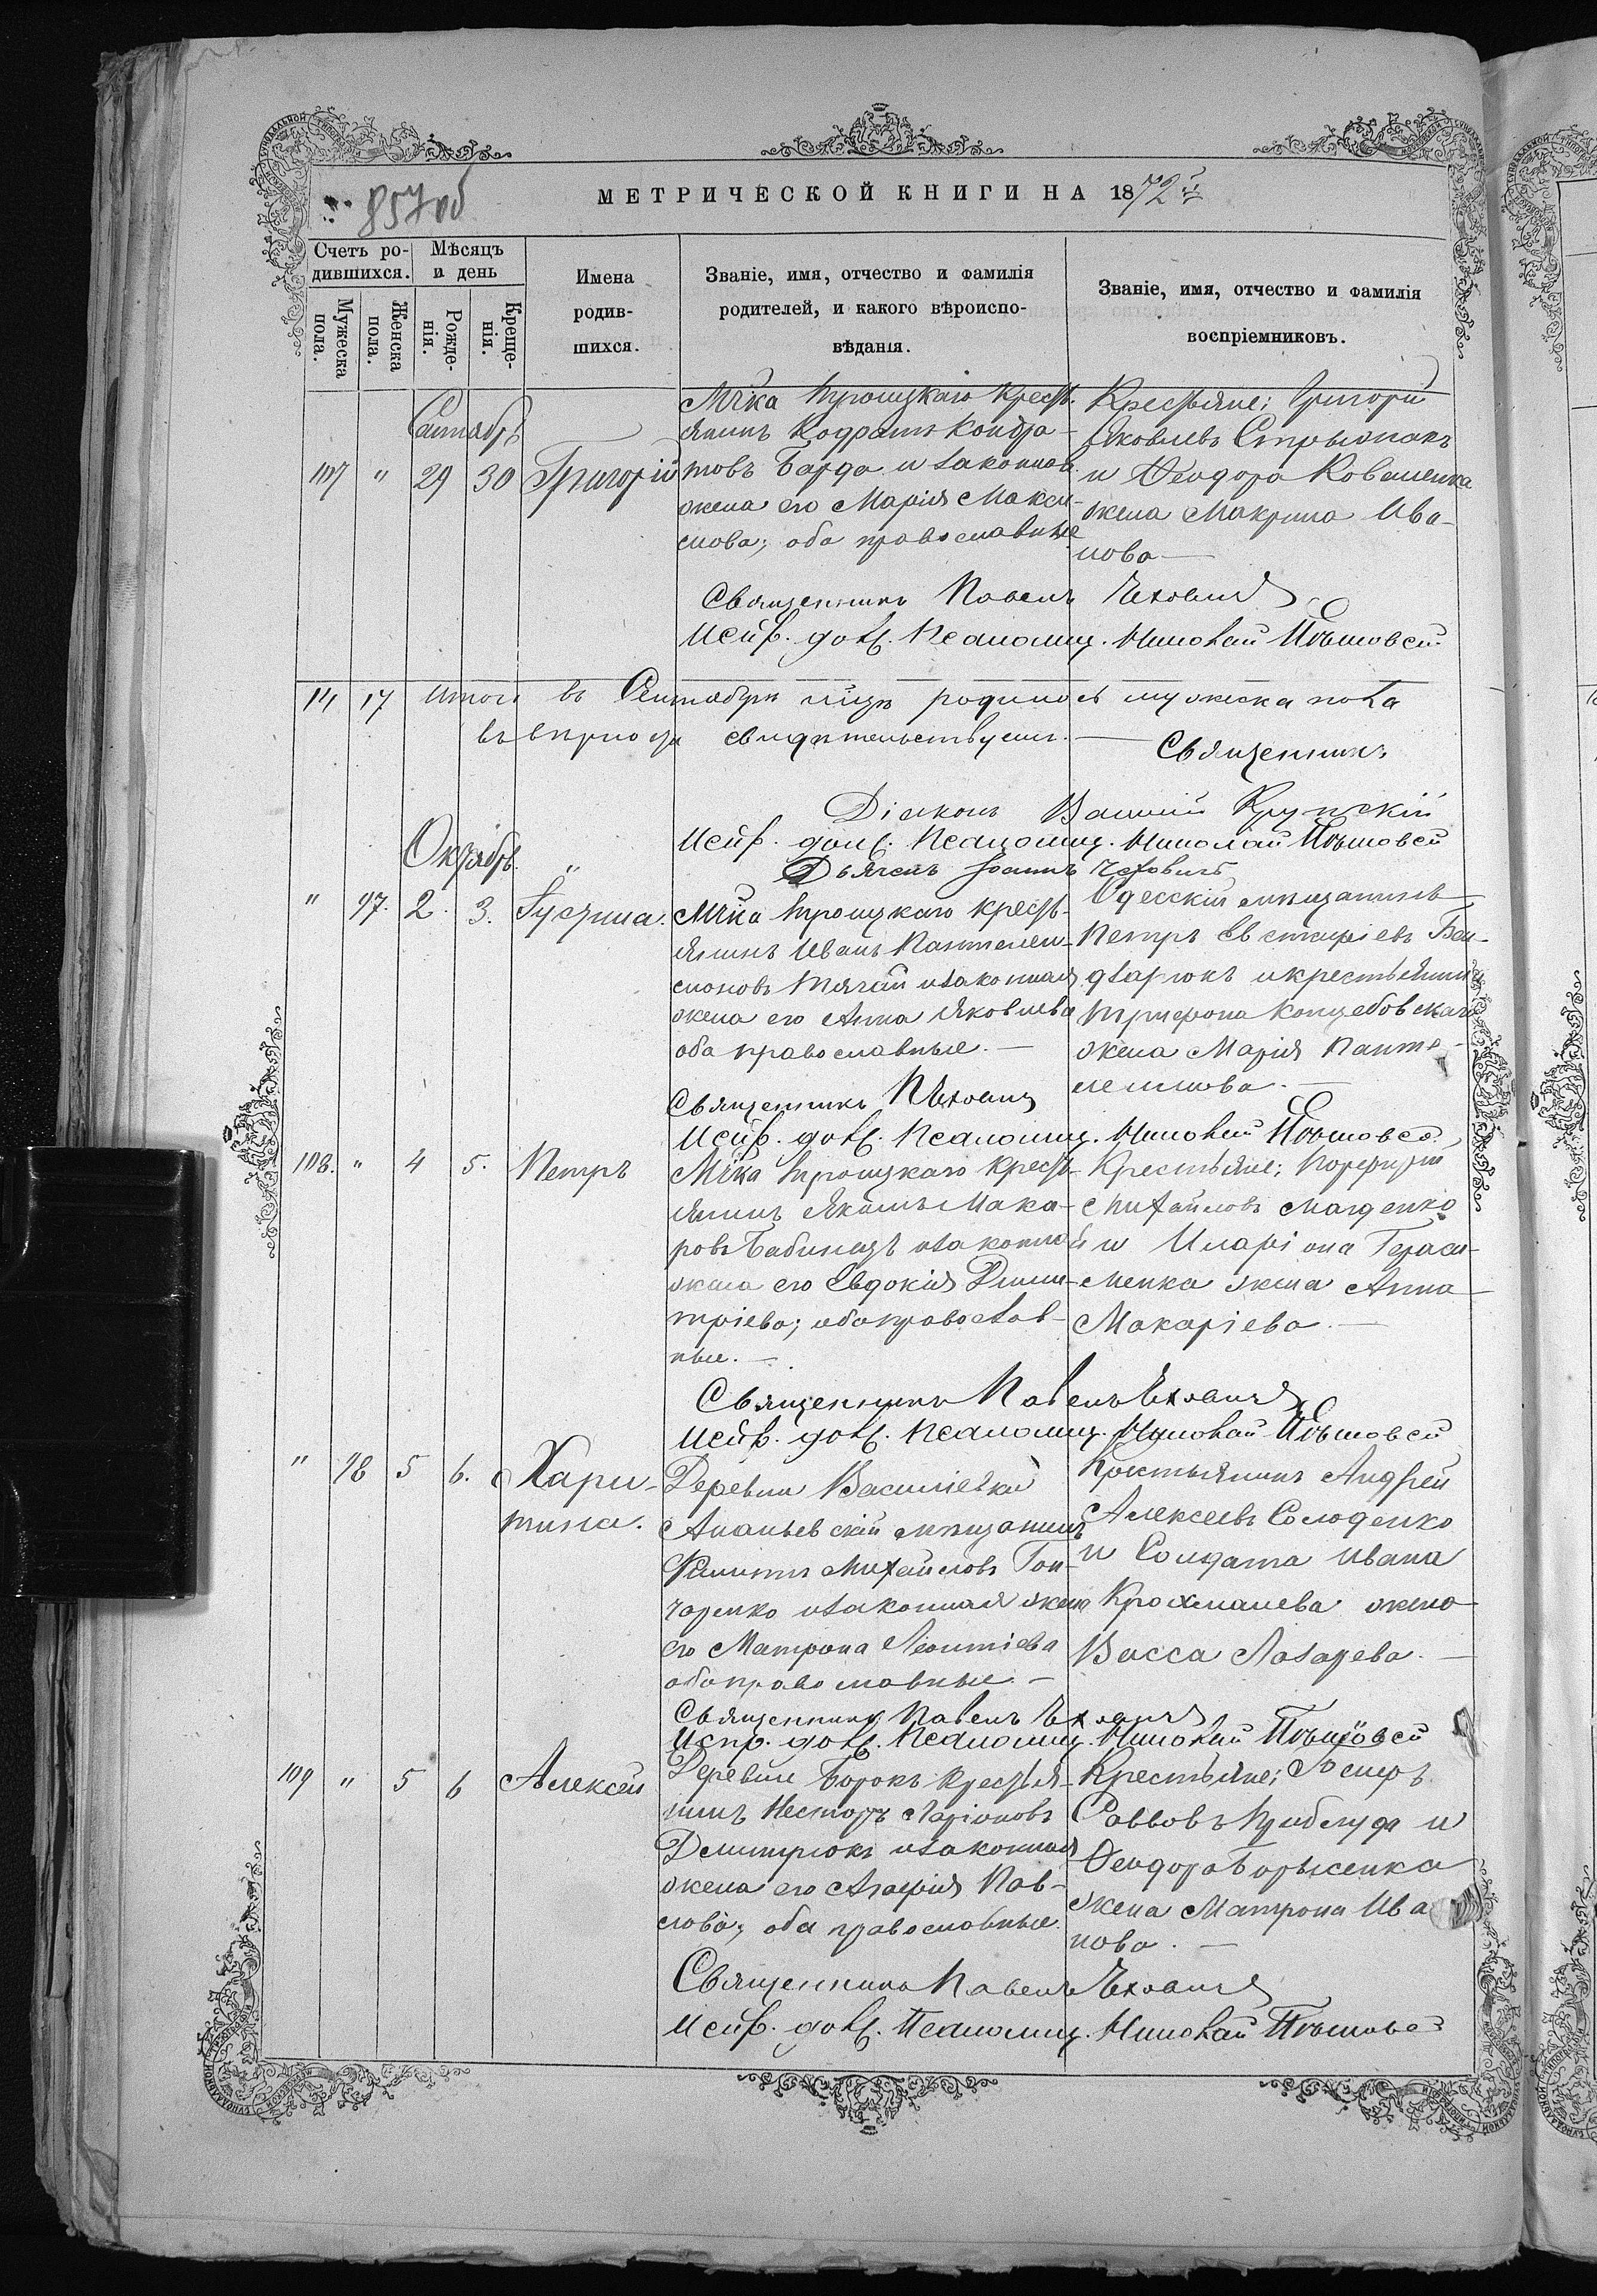 857 об
МЕТРИЧЕСКОЙ КНИГИ НА 1872й
Счетъ ро-
дившихся.
Мѣсяцъ
и день
Мужеска
пола.
Женска
пола.
Рожде-
нія.
Креще-
нія.
Имена
родив-
шихся.
Званіе, имя, отчество и фамилія
родителей, и какого вѣроиспо-
вѣданія.
Званіе, имя, отчество и фамилія
воспріемниковъ.
Сентябрь
107 " 29 30 Григорій
М-ка Троицкаго Кресть-
янинъ Кодратъ Кондра-
товъ Барда и законная
жена его Марія Макси-
мова; оба православные
Крестьяне; Григорій
Яковлевъ
и Феодора Коваленка
жена Макрина Ива-
нова —
Священникъ Павелъ Чеховичъ
Испр. долж. Псаломщ. Николай
14 17 Итого въ Сентябрѣ м-цѣ родилось мужеска пола
свидѣтельствуемъ. — Священникъ
Діаконъ Василій Крупскій
Испр. долж. Псаломщ. Николай
Дьячекъ Іоаннъ Чеховичъ
Октябрь.
" 97. 2. 3. Іустина.
М-ка Троицкаго кресть-
янинъ Иванъ Пантелеи-
моновъ Тягай и законная
жена его Анна Яковлева
оба православные. —
Одесскій мѣщанинъ
Петръ Евстафіевъ Бон-
дарюкъ и крестьянина
Трифона Концебовскаго
жена Марія Панте-
леимова. —
Священникъ П Чеховичъ
Испр. долж. Псаломщ. Николай
108. " 4 5. Петръ
М-ка Троицкаго кресть-
янинъ Якимъ Мака-
ровъ Бабинецъ и законная
жена его Евдокія Дими-
тріева; оба православ-
ные. —
Крестьяне; Порфирій
Михайловъ Магденко
и Иларіона Гераси-
менка жена Анна
Макаріева. —
Священникъ Павелъ Чеховичъ
Испр. долж. Псаломщ. Николай
" 98 5 6. Хари-
тина.
Деревни Василіевки
Ананьевскій мѣщанинъ
Филиппъ Михайловъ Гон-
чаренко и законная жена
его Матрона Леонтіева
оба православные. —
Крестьянинъ Андрей
Алексеевъ Солоденко
и Солдата Ивана
Крохмалева жена
Васса Лазарева. —
Священникъ Павелъ Чеховичъ
Испр. долж. Псаломщ. Николай
109 " 5 6 Алексей
Деревни Борокъ крестья-
нинъ Несторъ Ларіоновъ
Демитрюкъ и законная
жена его Агафія Пав-
лова; оба православные.
Крестьяне;
Саввовъ Приблуда и
Феодора Борисенка
жена Матрона Ива-
нова. —
Священникъ Павелъ Чеховичъ
Испр. долж. Псаломщ. Николай